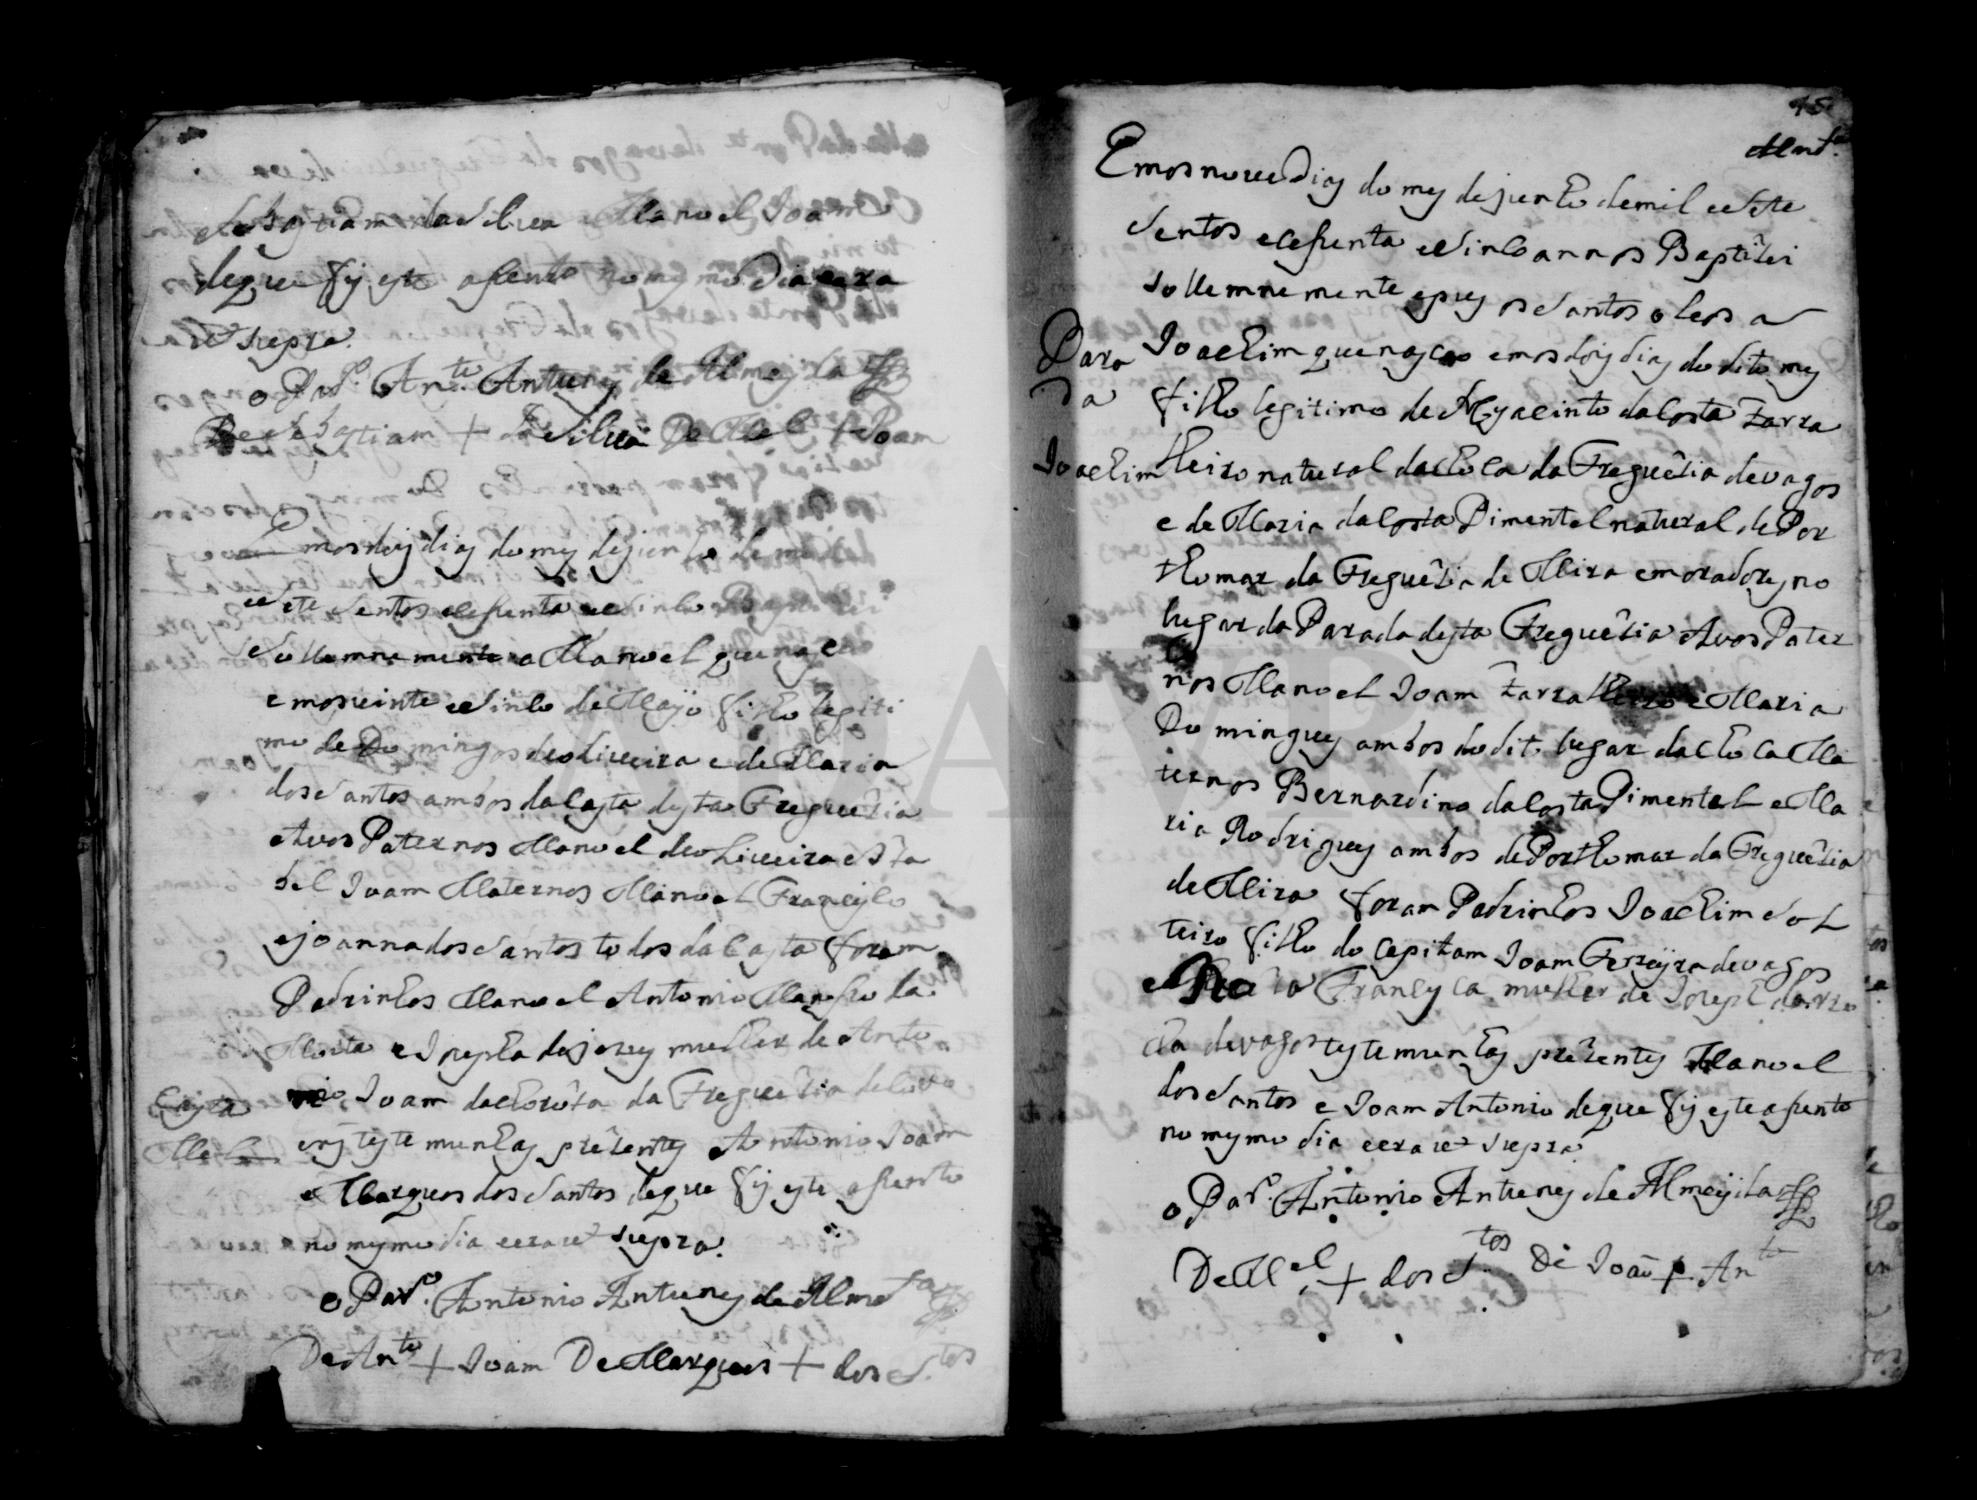 Sebastiam da Silva e Manoel Joam
de que fis este asento no mesmo dia e era
ut supra.
o Par.º Ant.º Antunes de Almeyda
De Sebastiam + da Silva De M.el + Joam
Em os dois dias do mes de junho de mil
e sete sentos e sesenta e sinco Baptizei
sollemnemente a Manoel que naceo
em os vinte e sinco de Mayo filho legiti
mo de Domingos de oliveira e de Maria
dos Santos ambos da Casta desta Freguezia
Avos Paternos Manoel de oliveira e Iza
bel Joam Maternos Manoel Francisco
e joanna dos Santos todos da Casta foram
Padrinhos Manoel Antonio Manso da
Moita e Josepha de jezus mulher de Anto
nio Joam da da Freguezia de
testemunhas prezentes Antonio Joam
e Marques dos Santos de que fis este asento
no mesmo dia e era ut supra.
o Par.º Antonio Antunes de Alm.da
De Ant.º + Joam De Marques + dos S.tos
Casta
M.el
45
Em os nove dias do mes de junho de mil e sete
sentos e sesenta e sinco annos Baptizei
sollemnemente e pus os Santos oleos a
Joachim que nasceo em os dois dias do dito mes
filho legitimo de Hyacinto da Costa Zarra
lheiro natural da Choca da Freguezia de vagos
e de Maria da Costa Pimentel natural de Por
thomar da Freguezia de Mira e moradores no
lugar da Parada desta Freguezia Avos Pater
nos Manoel Joam Zarralheiro e Maria
Domingues ambos do dito lugar da Choca Ma
ternos Bernardino da Costa Pimentel e Ma
ria Rodrigues ambos de Porthomar da Freguezia
de Mira foram Padrinhos Joachim sol
teiro filho do Capitam Joam Ferreyra de vagos
e Francisca mulher de Joseph da
de vagos testemunhas prezentes Manoel
dos Santos e Joam Antonio de que fis este asento
no mesmo dia e era ut supra
o Par.º Antonio Antunes de Almeyda
De M.el + dos S.tos De Joaõ + Ant.º
Para
da
Joachim